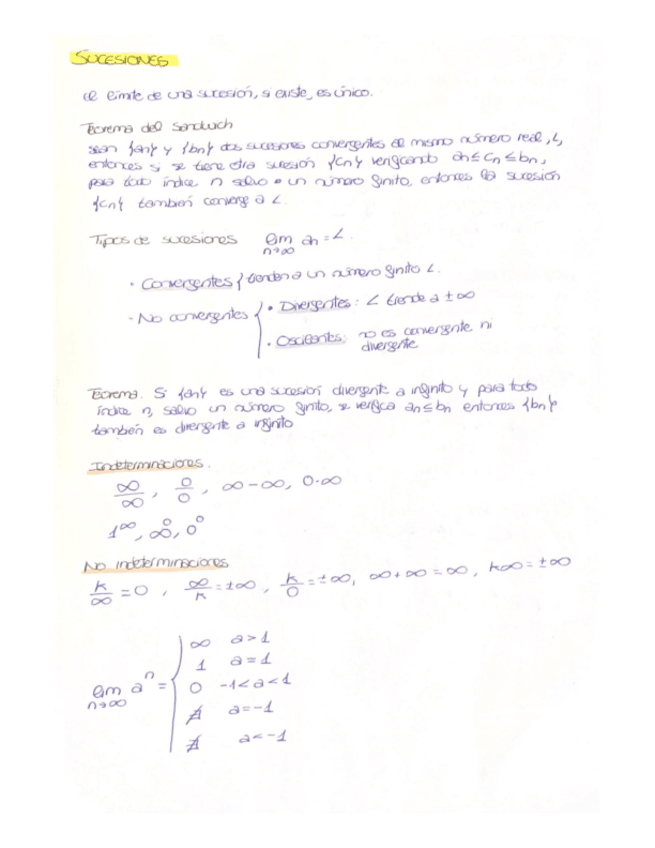 SUCESIONES
el límite de una sucesión, si existe, es único.
Teorema del sandwich
sean {an} y {bn} dos sucesiones convergentes al mismo número real, L,
entonces si se tiene otra sucesión {cn} verificando an ≤ cn ≤ bn,
para todo índice n salvo a un número finito, entonces la sucesión
{cn} también converge a L.
Tipos de sucesiones lim n→∞ an = L
· Convergentes { tienden a un número finito L.
- No convergentes { • Divergentes: L tiende a ±∞
• Oscilantes: no es convergente ni
divergente
Teorema. Si {an} es una sucesión divergente a infinito y para todo
índice n, salvo un número finito, se verifica an ≤ bn entonces {bn}
también es divergente a infinito
Indeterminaciones.
∞/∞, 0/0, ∞-∞, 0·∞
1^∞, ∞^0, 0^0
No indeterminaciones
k/∞ = 0, ∞/k = ±∞, k/0 = ±∞, ∞+∞ = ∞, k∞ = ±∞
lim n→∞ a^n = { ∞ a>1
1 a=1
0 -1<a<1
∄ a=-1
∄ a<-1